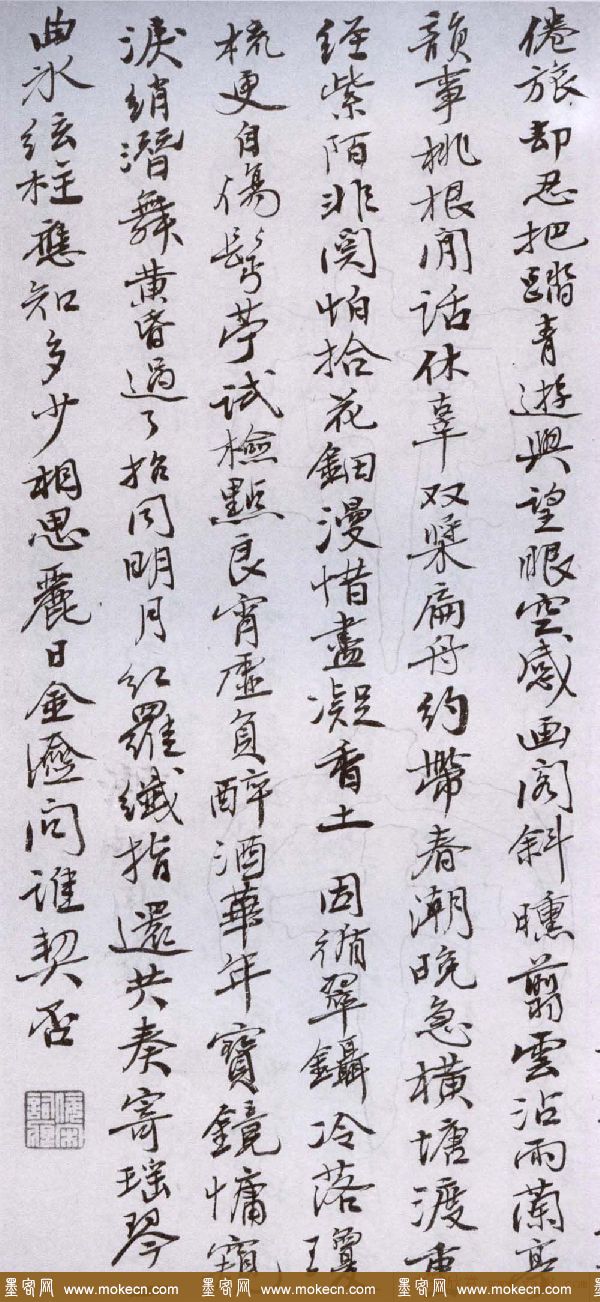 倦旅却忍把踏青遊興望眼空感画阁斜曛翦雲沾雨蘭亭
韻事桃根閒話休辜双桨扁舟約帶春潮晚急横塘渡重
经紫陌非関怕拾花鈿漫惜盡凝香土 因循翠鑷冷落瓊
梳更自傷鬓苧試檢點良宵虚負醉酒華年寶鏡慵窺
淚綃潛舞黄昏過了招同明月红羅纖指還共奏寄瑶琴
曲水弦柱應知多少相思麗日金 問谁契否
墨客网 www.mokecn.com 墨客网 www.mokecn.com 墨客网 www.mokecn.com